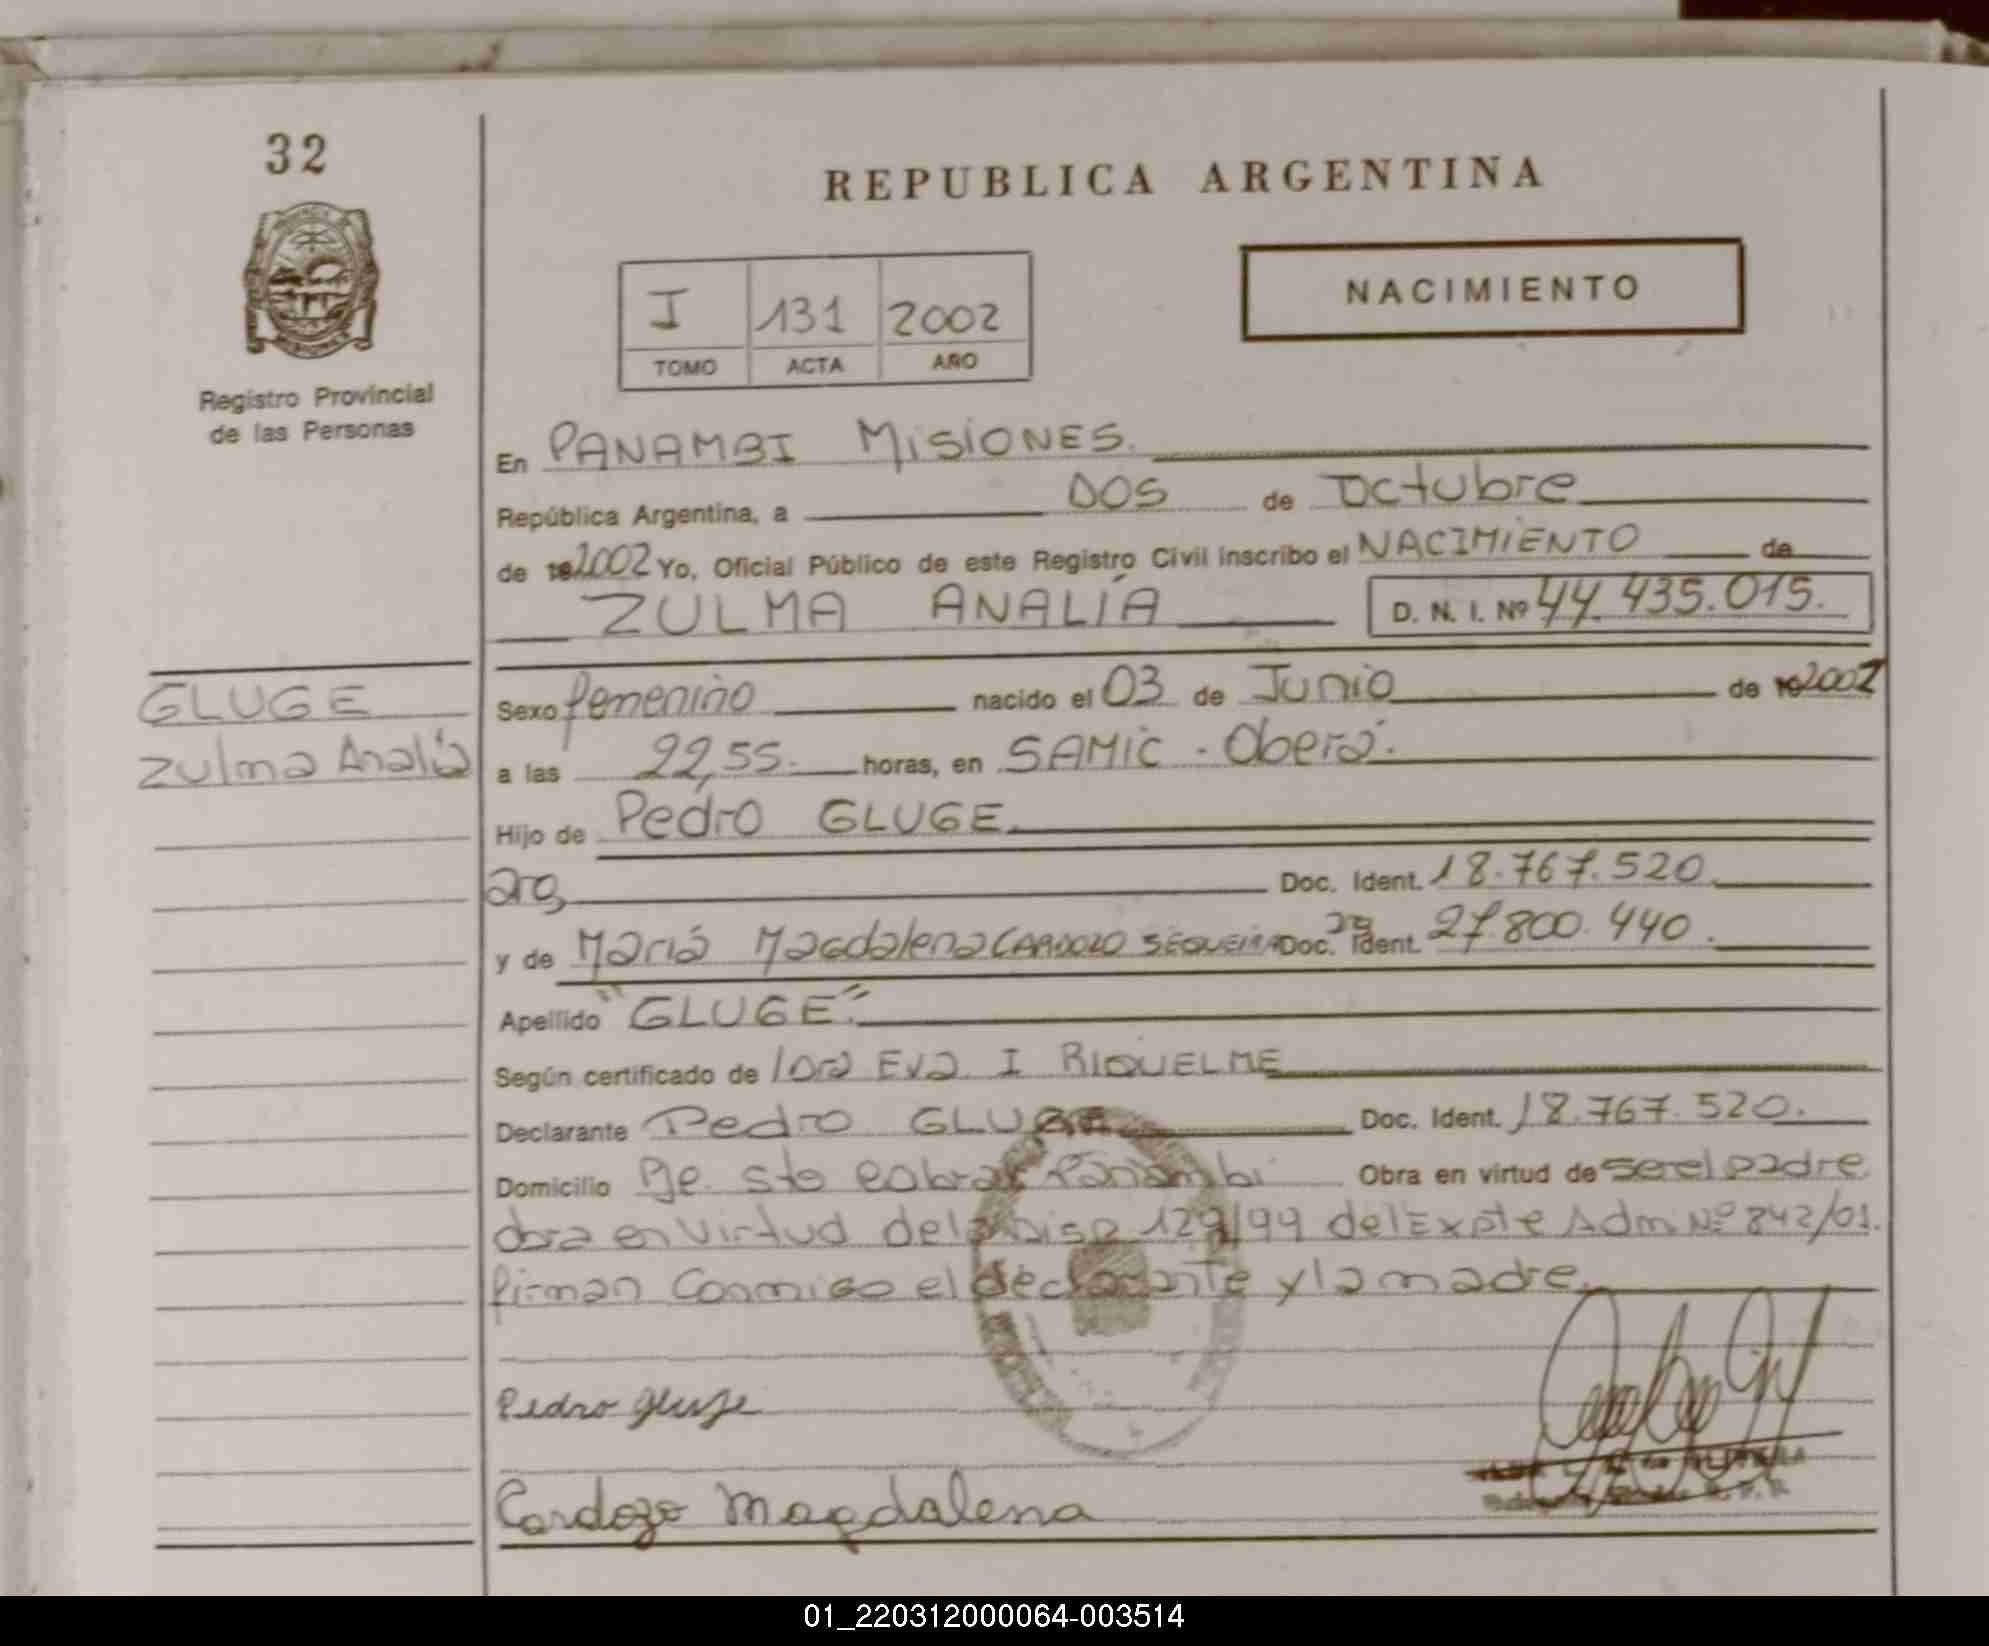 32
REPUBLICA ARGENTINA
NACIMIENTO
I 131 2002
TOMO ACTA AÑO
Registro Provincial
de las Personas
En PANAMBI MISIONES.
República Argentina, a DOS de Octubre
de 192002 Yo, Oficial Público de este Registro Civil inscribo el NACIMIENTO de
ZULMA ANALÍA D. N. I. Nº 44.435.015.
GLUGE
Zulma Analía
Sexo femenino nacido el 03 de Junio de 192002
a las 22,55. horas, en SAMIC - Oberá.
Hijo de Pedro GLUGE
arg Doc. Ident. 18.767.520
y de María Magdalena CARDOZO SEQUEIRA arg Doc. Ident. 27.800.440.
Apellido "GLUGE".
Según certificado de EVA I RIQUELME
Declarante Pedro GLUGE Doc. Ident. 18.767.520.
Domicilio Pje. Sto Panambi Obra en virtud de ser el padre
obra en virtud de la Disp 129/99 del Expte Adm Nº 842/01.
firman Conmigo el declarante y la madre
Pedro Gluge
Cardozo Magdalena
01_220312000064-003514